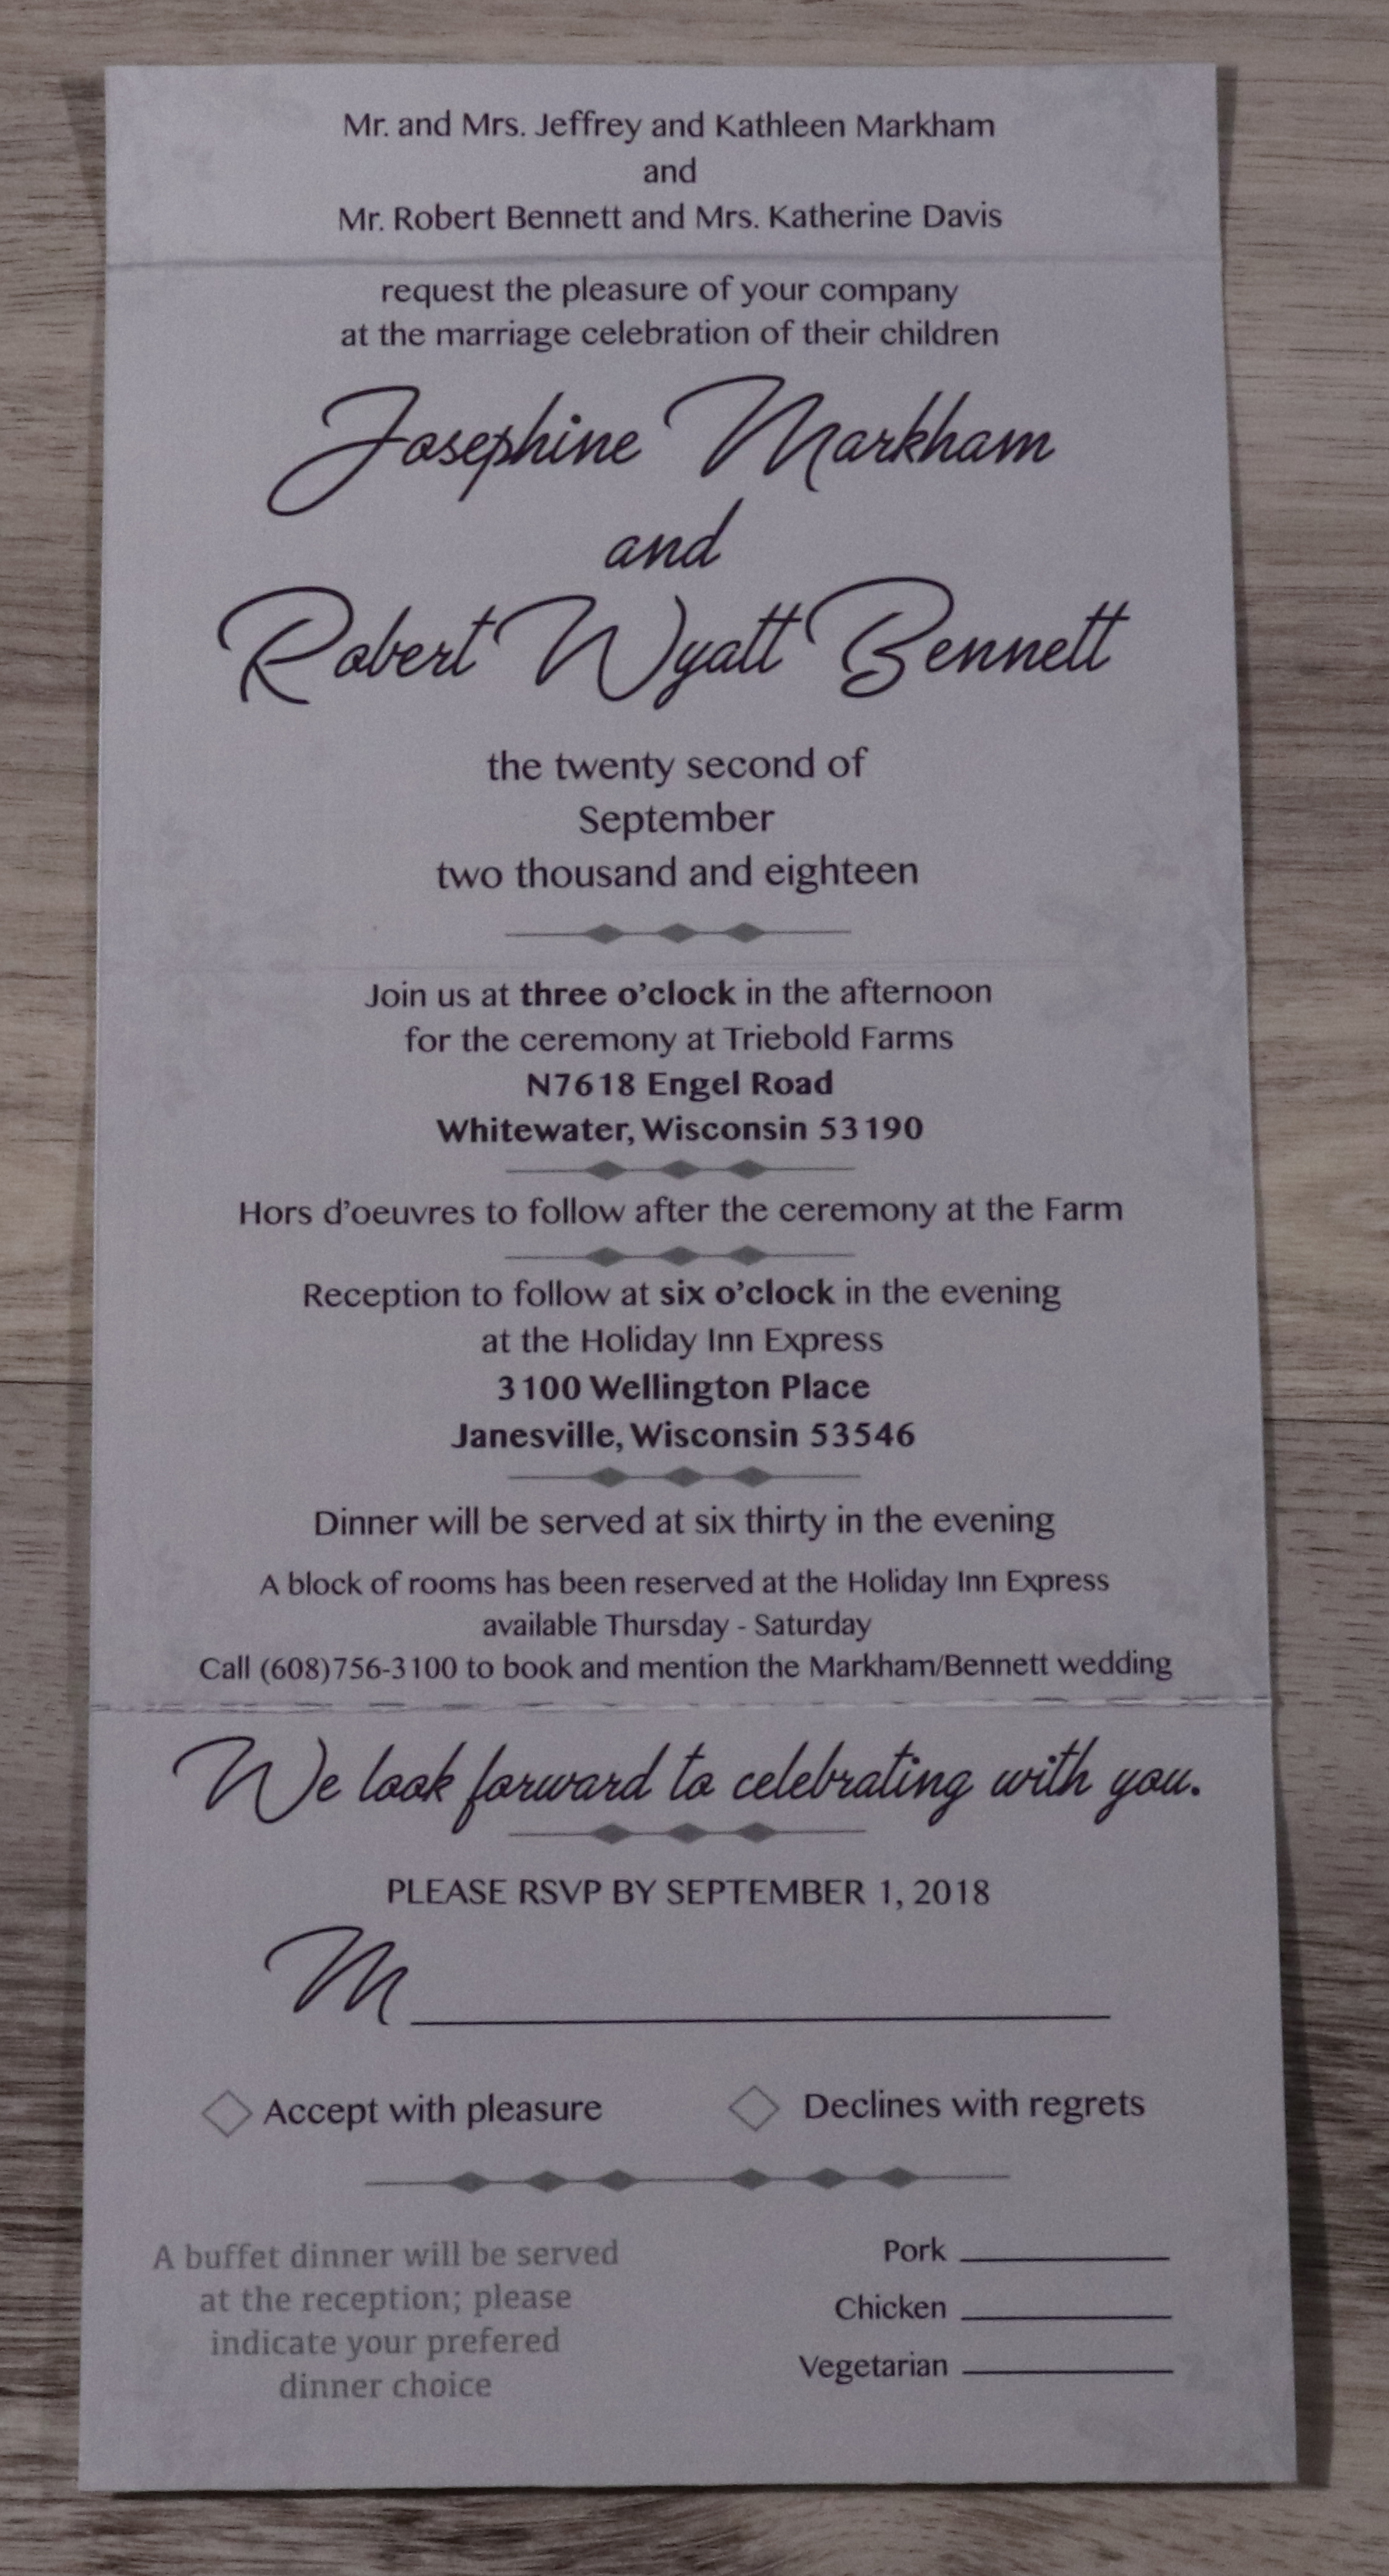 Mr. and Mrs. Jeffrey and Kathleen Markham
and
Mr. Robert Bennett and Mrs. Katherine Davis
request the pleasure of your company
at the marriage celebration of their children
Josephine Markham
and
Robert Wyatt Bennett
the twenty second of
September
two thousand and eighteen
Join us at three o’clock in the afternoon
for the ceremony at Triebold Farms
N7618 Engel Road
Whitewater, Wisconsin 53190
Hors d’oeuvres to follow after the ceremony at the Farm
Reception to follow at six o’clock in the evening
at the Holiday Inn Express
3100 Wellington Place
Janesville, Wisconsin 53546
Dinner will be served at six thirty in the evening
A block of rooms has been reserved at the Holiday Inn Express
available Thursday - Saturday
Call (608)756-3100 to book and mention the Markham/Bennett wedding
We look forward to celebrating with you.
PLEASE RSVP BY SEPTEMBER 1, 2018
M
Accept with pleasure
Declines with regrets
A buffet dinner will be served
at the reception; please
indicate your prefered
dinner choice
Pork
Chicken
Vegetarian